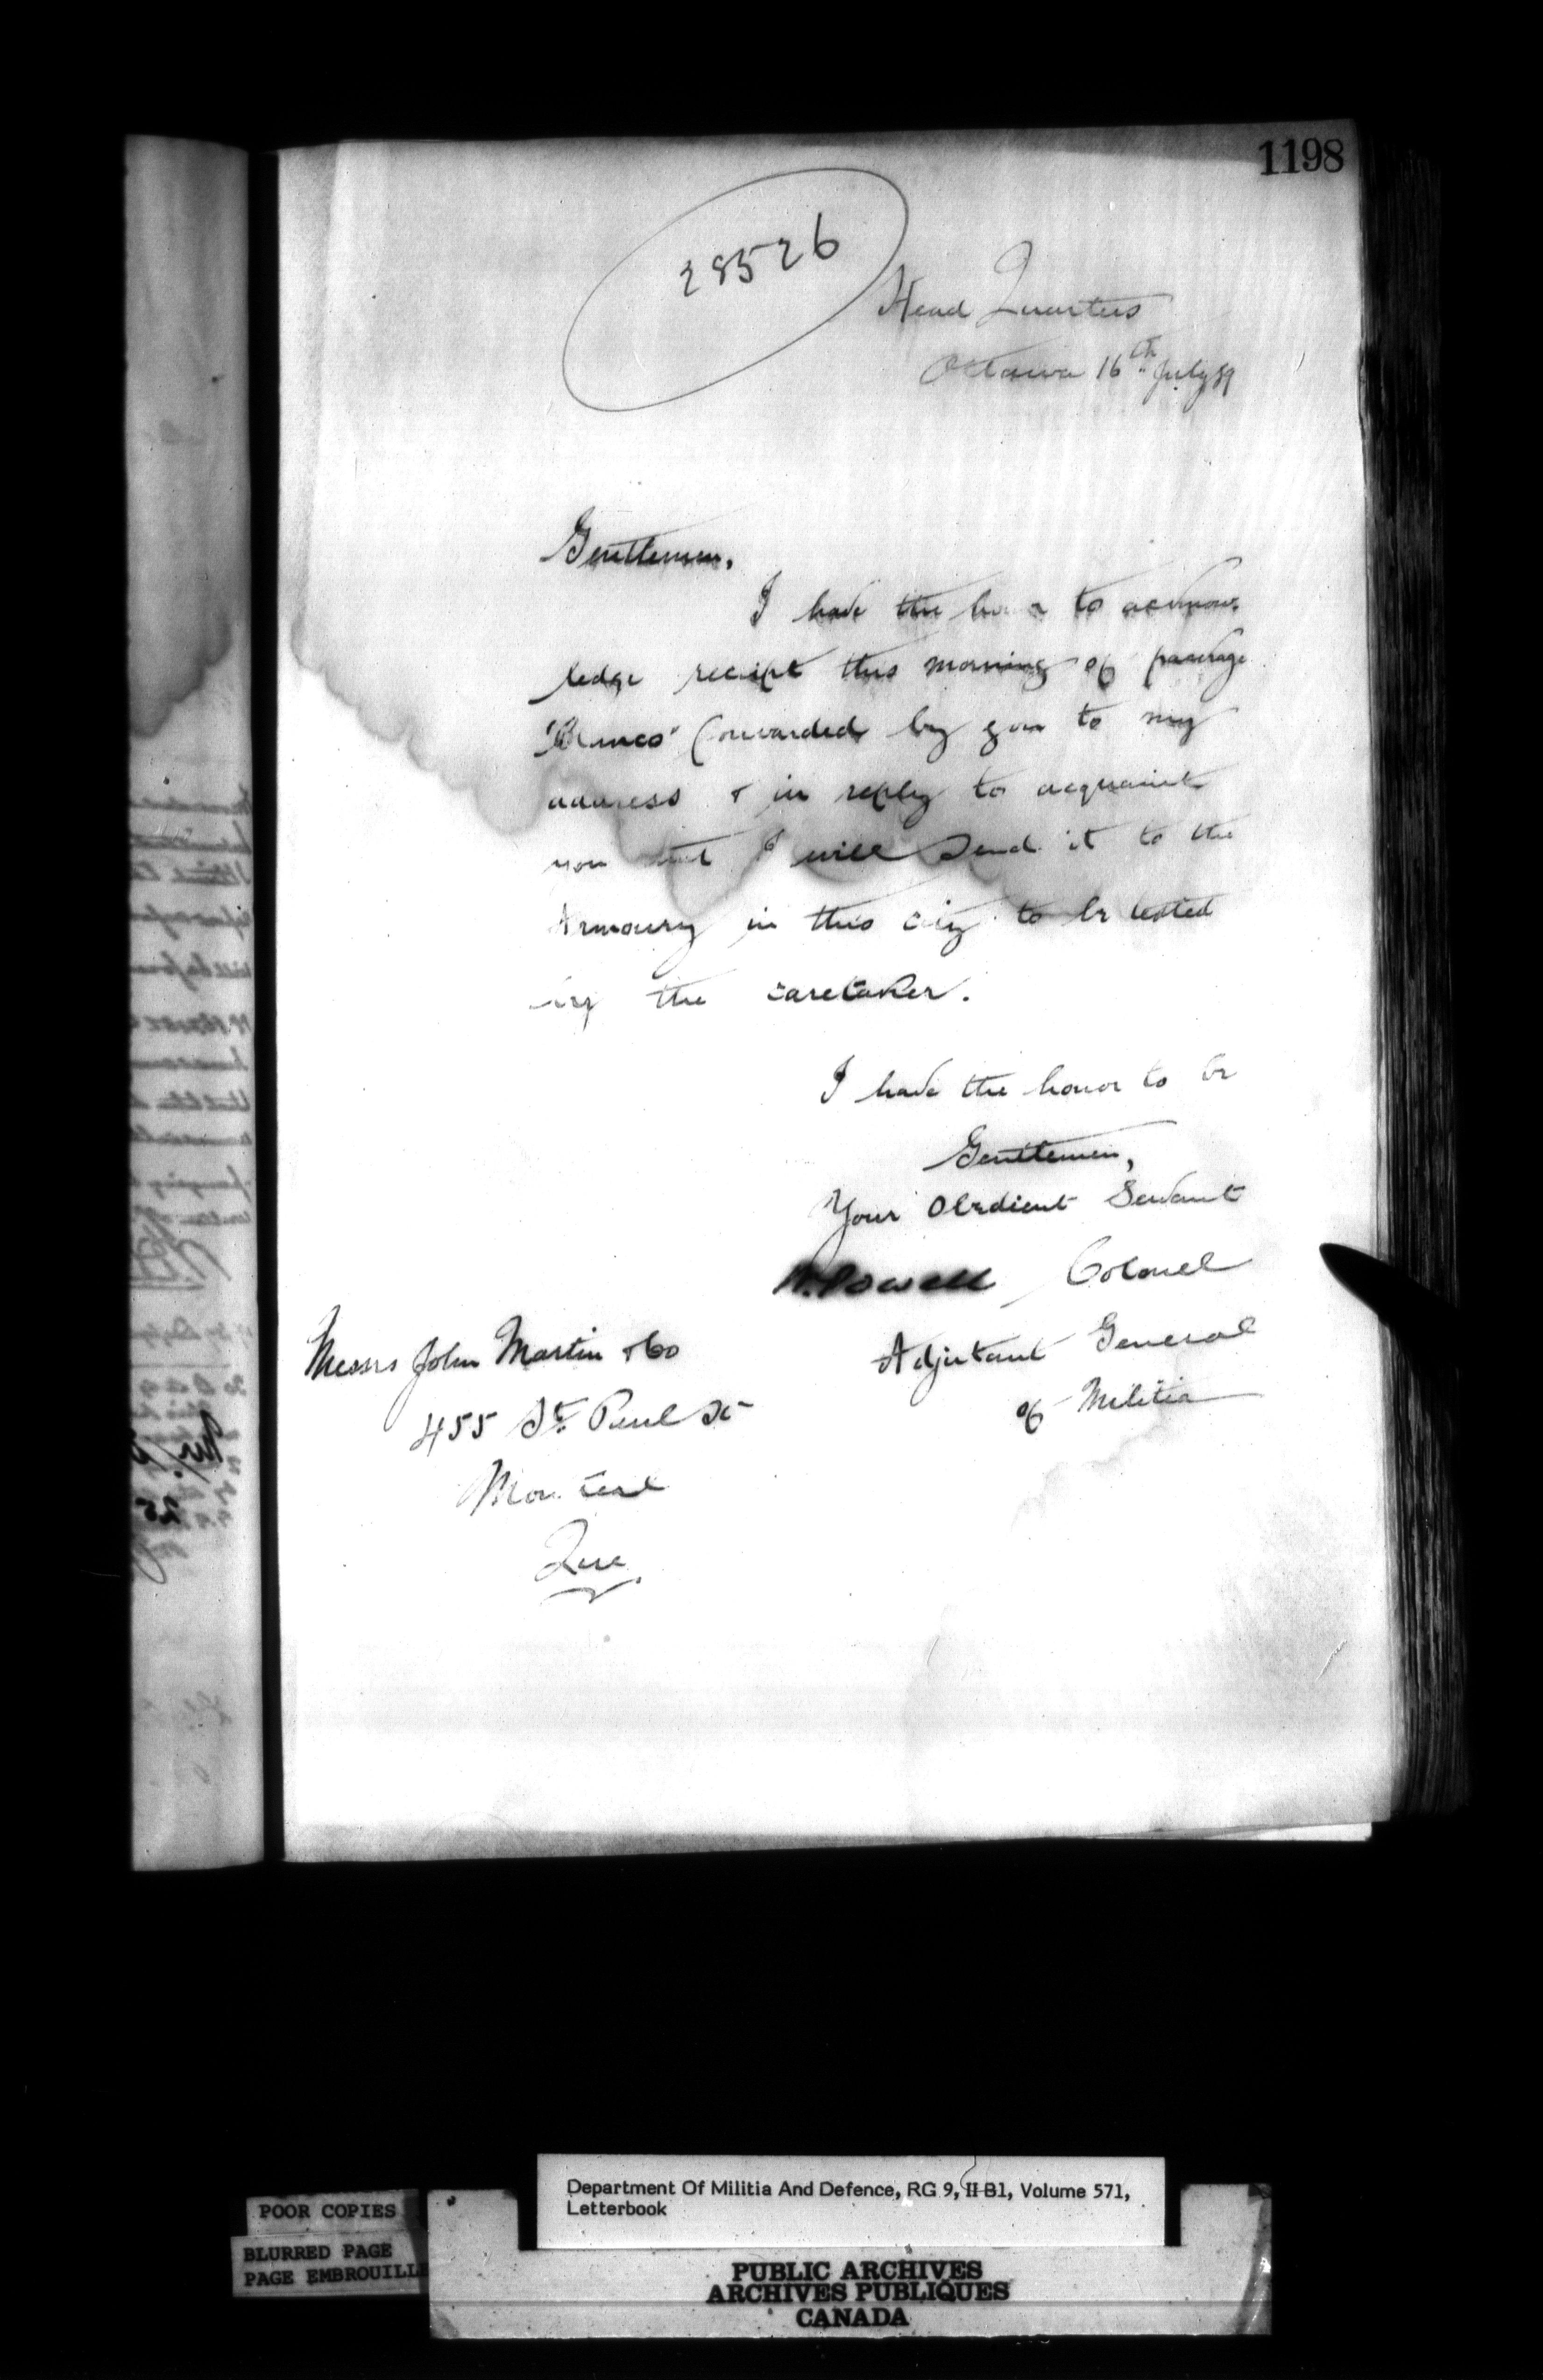 1198
28526
Head Quarters
Ottawa 16th July 89
Gentlemen,
I have the honor to acknow
ledge receipt this morning of package
forwarded by you to my
address & in reply to acquaint
you that I will send it to the
Armoury in this city to be tested
by the caretaker.
I have the honor to be
Gentlemen,
Your Obedient Servant
W. Powell Colonel
Adjutant General
of Militia
Messrs John Martin & Co
455 St. Paul St
Montreal
Que
Department Of Militia And Defence, RG 9, II B1, Volume 571,
Letterbook
POOR COPIES
BLURRED PAGE
PAGE EMBROUILLE
PUBLIC ARCHIVES
ARCHIVES PUBLIQUES
CANADA